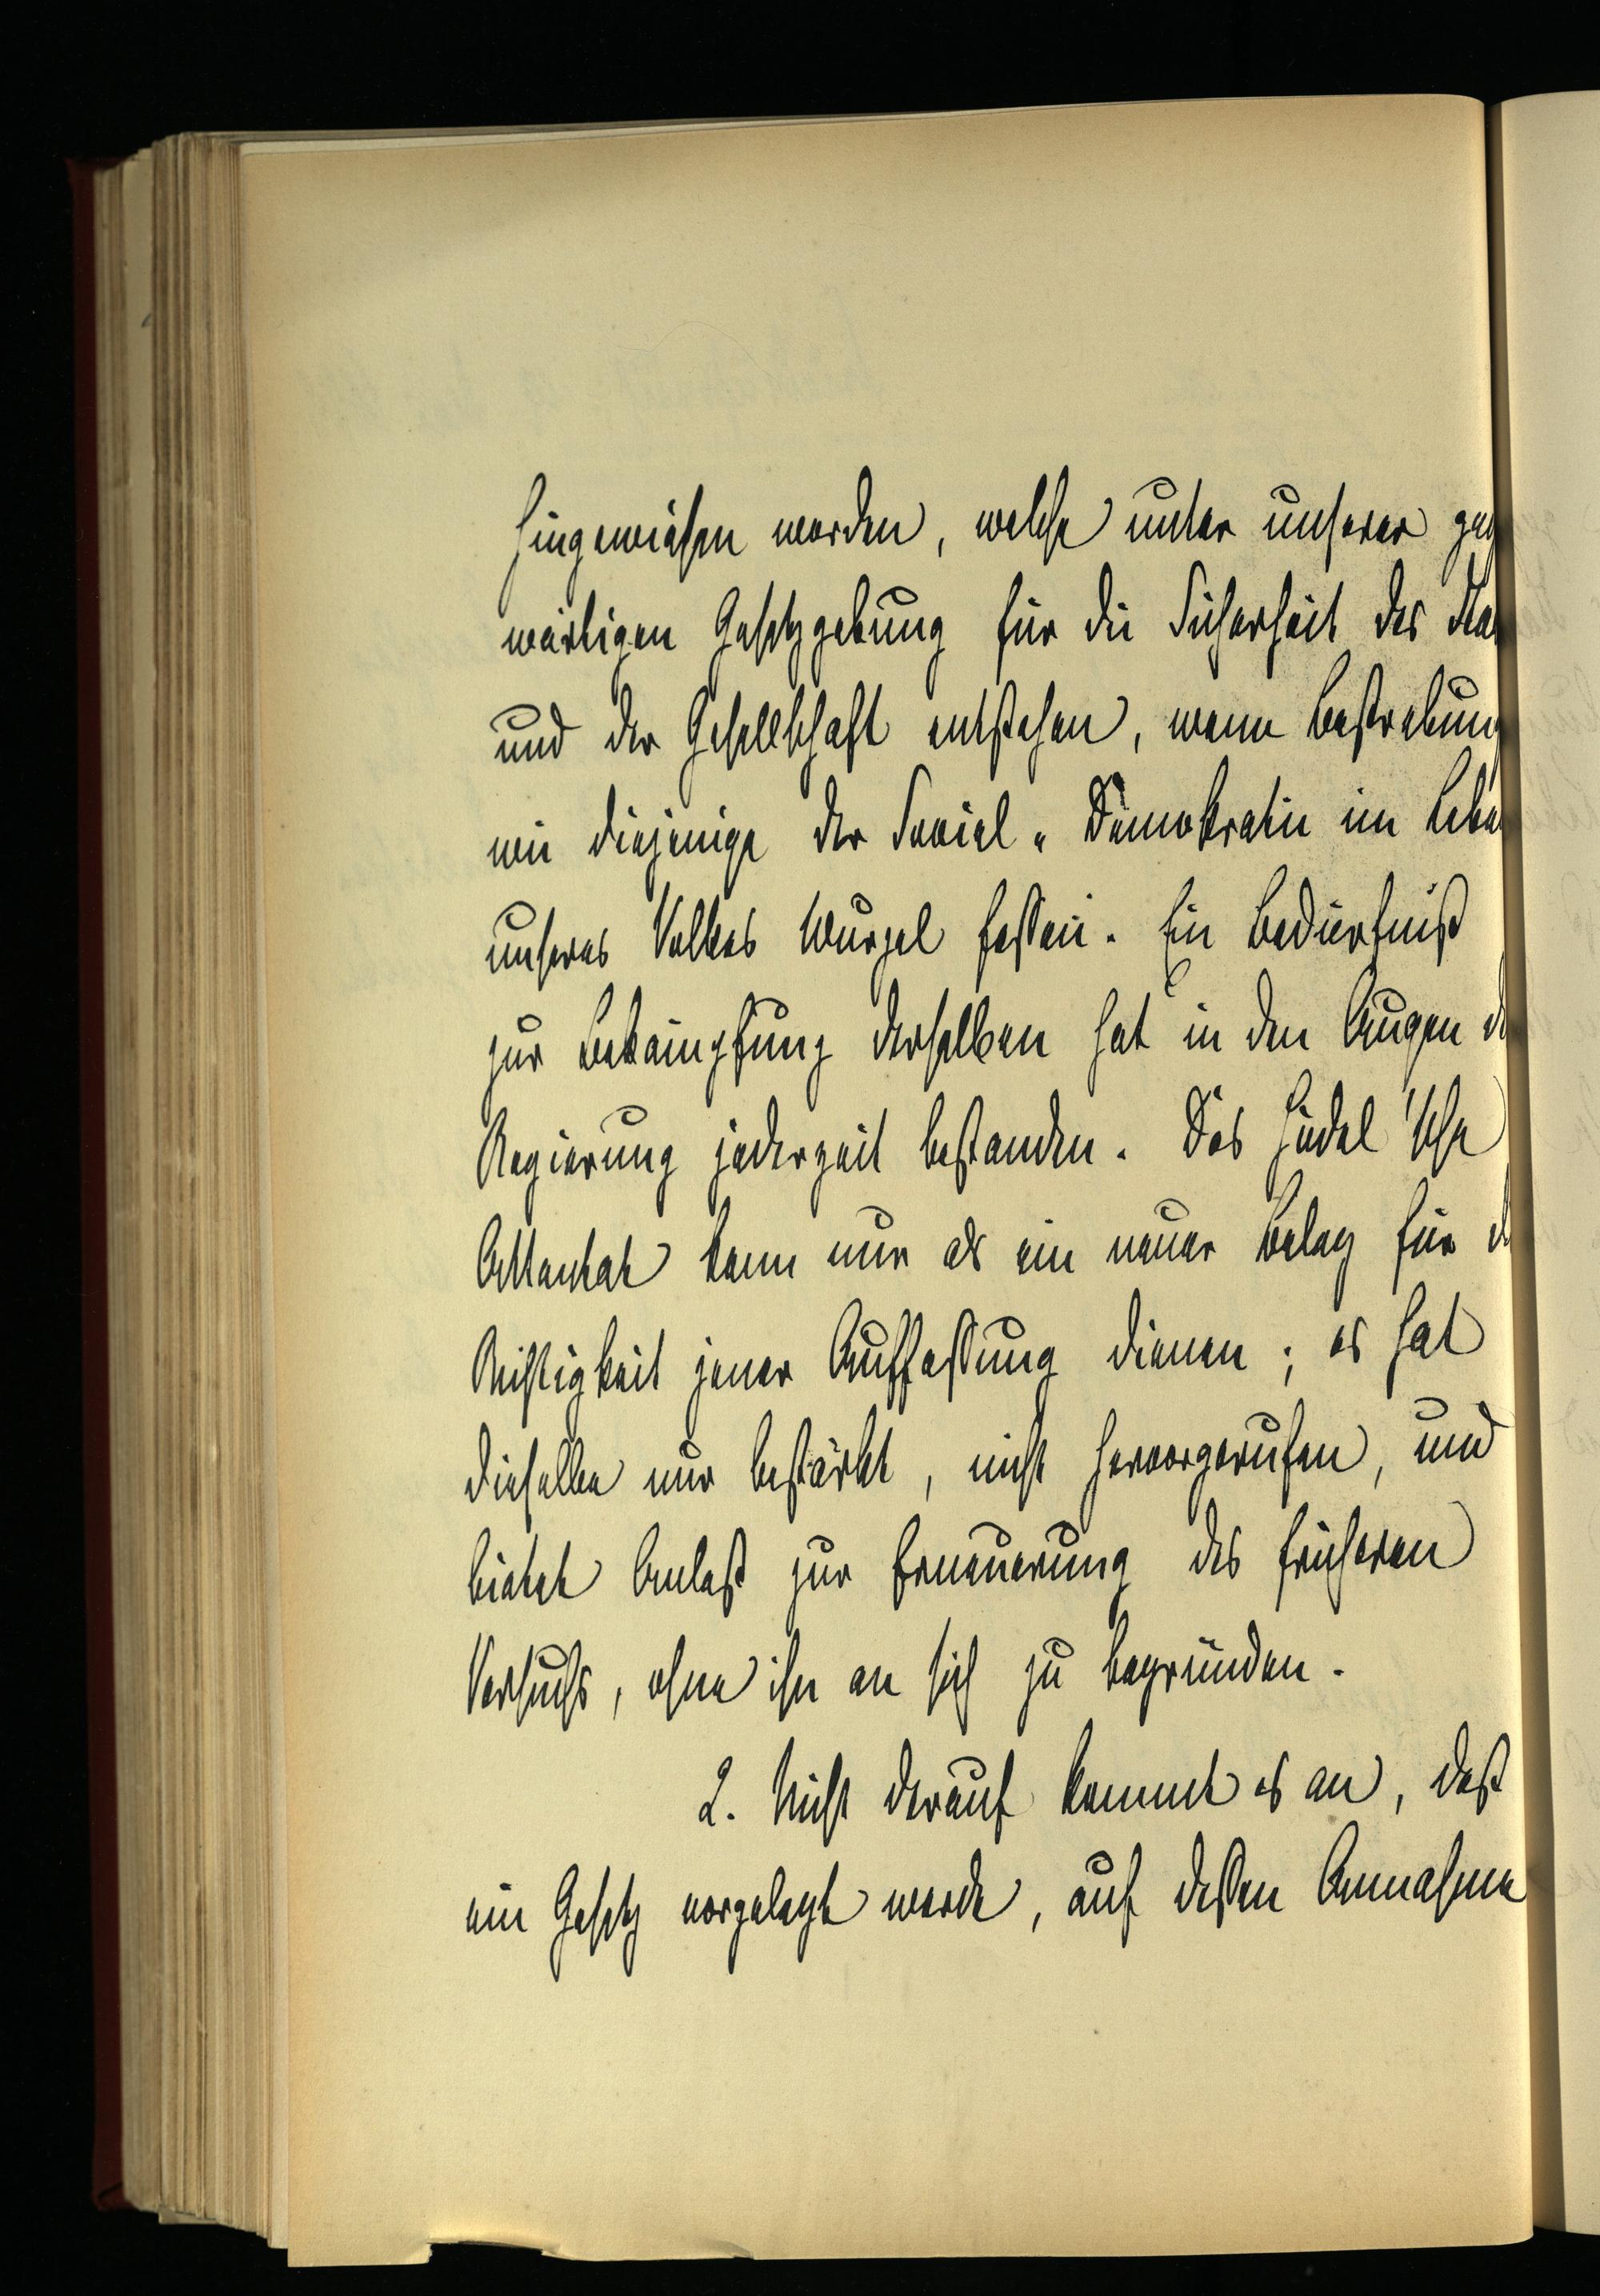 hingewiesen worden, welche unter unserer geg
wärtigen Gesetzgebung für die Sicherheit des Staa
und der Gesellschaft entstehen, wenn Bestrebung
wie diejenige der Social-Demokratie im Lebe
unseres Volkes Wurzel fassen. Ein Bedürfniß
zur Bekämpfung derselben hat in den Augen de
Regierung jederzeit bestanden. Das Hödel'sche
Attentat kann nur als ein neuer Belag für d
Richtigkeit jener Auffassung dienen; es hat
dieselbe nur bestärkt, nicht hervorgerufen, und
bietet Anlaß zur Erneuerung des früheren
Versuchs, ohne ihn an sich zu begründen.
2. Nicht darauf kommt es an, daß
ein Gesetz vorgelegt werde, auf dessen Annahme